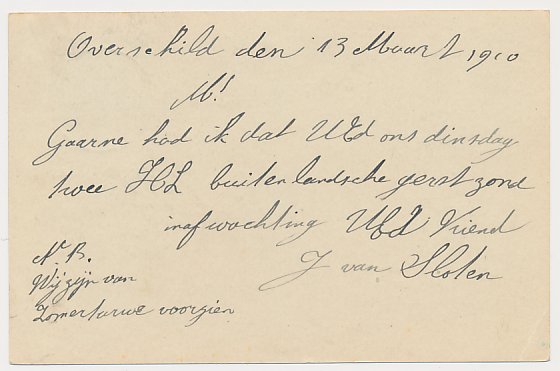 Overschild den 13 Maart 1910
M!
Gaarne had ik dat UEd ons dinsdag
twee HL buitenlandsche gerst zond
inafwachting UEd Vriend
J van Sloten
N. B.
Wij zijn van
Zomertarwe voorzien